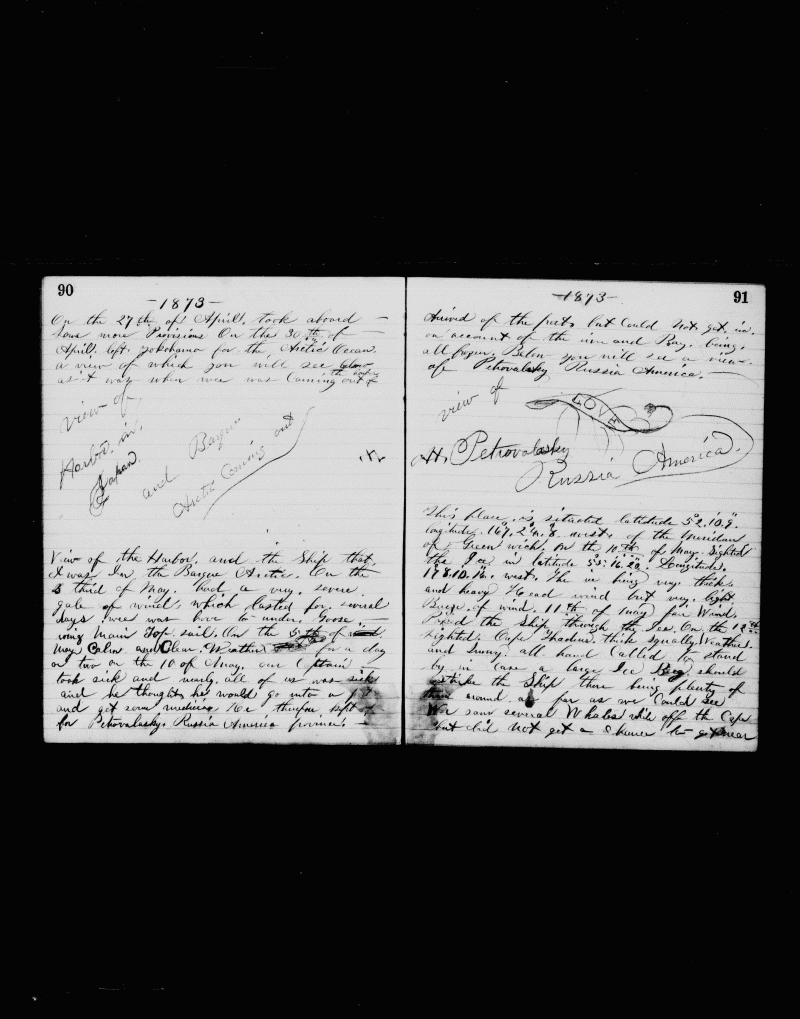 90
-1873-
On the 27th of April. took aboard
some more Provisions On the 30th of
April. left. Yokohama for the, Arctic Ocean.
a view of which you will see below
as it was when wee was Coming out of
the harbor
View of
Harbor in,
Japan.
and Barque
Arctic Coming out
View of the Harbor. and the Ship that,
I was In, the Barque Arctic. On the
3 third of May. had a very. severe.
gale of wind. which lasted for. several
days. wee was hove to under. Goose.
wing Main Top. sail. On the 5th of
May Calm and Clear. Weather for a day
or two on the 10 of May. our Captain
took sick and nearly. all of us was sick
and he thought he would go into a
and get some medicine He therefore kept of
for Petrovalasky. Russia America province. —
91
-1873-
Arrived of the port, but Could Not get. in.
on account of the river and Bay. being,
all frozen. Below you will see a view.
off Petrovalasky Russia America. —
view of
LOVE
Petrovalasky
Russia America.
This place. is situated latitude 52.10.9.
longitude. 167.2.4.8. west. of the Meridian
of Green wich. On the 10th of May. Sighted
the Ice in latitude 55.16.20. Longitude.
178.10.16. west. The ice being very. thick.
and heavy Head wind but very. light
Breeze. of wind. 11th of may fair Wind.
the Ship through the Ice. On the 12th
sighted. Cape Thadeus. thick squally. Weather.
and all hand Called to stand
by in case a large Ice Berg. should
strike the Ship there being plenty of
them around. as far as we Could see
Wee saw several Whales while off the Cape
but did Not get a Chance to get near